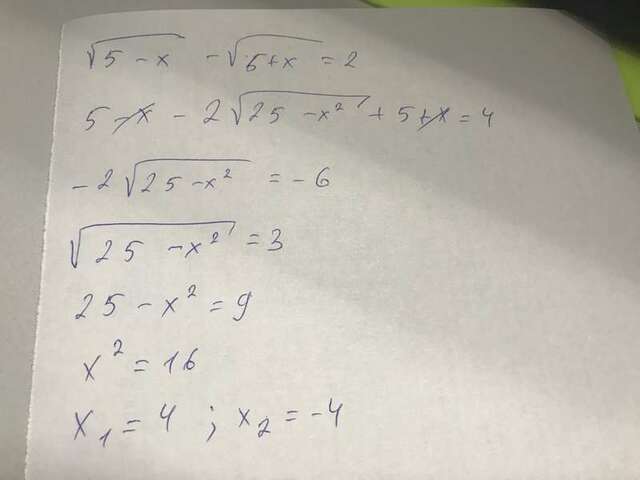 √5 - x - √5 + x = 2
5 - x - 2√25 - x² + 5 + x = 4
-2√25 - x² = -6
√25 - x² = 3
25 - x² = 9
x² = 16
x₁ = 4 ; x₂ = -4